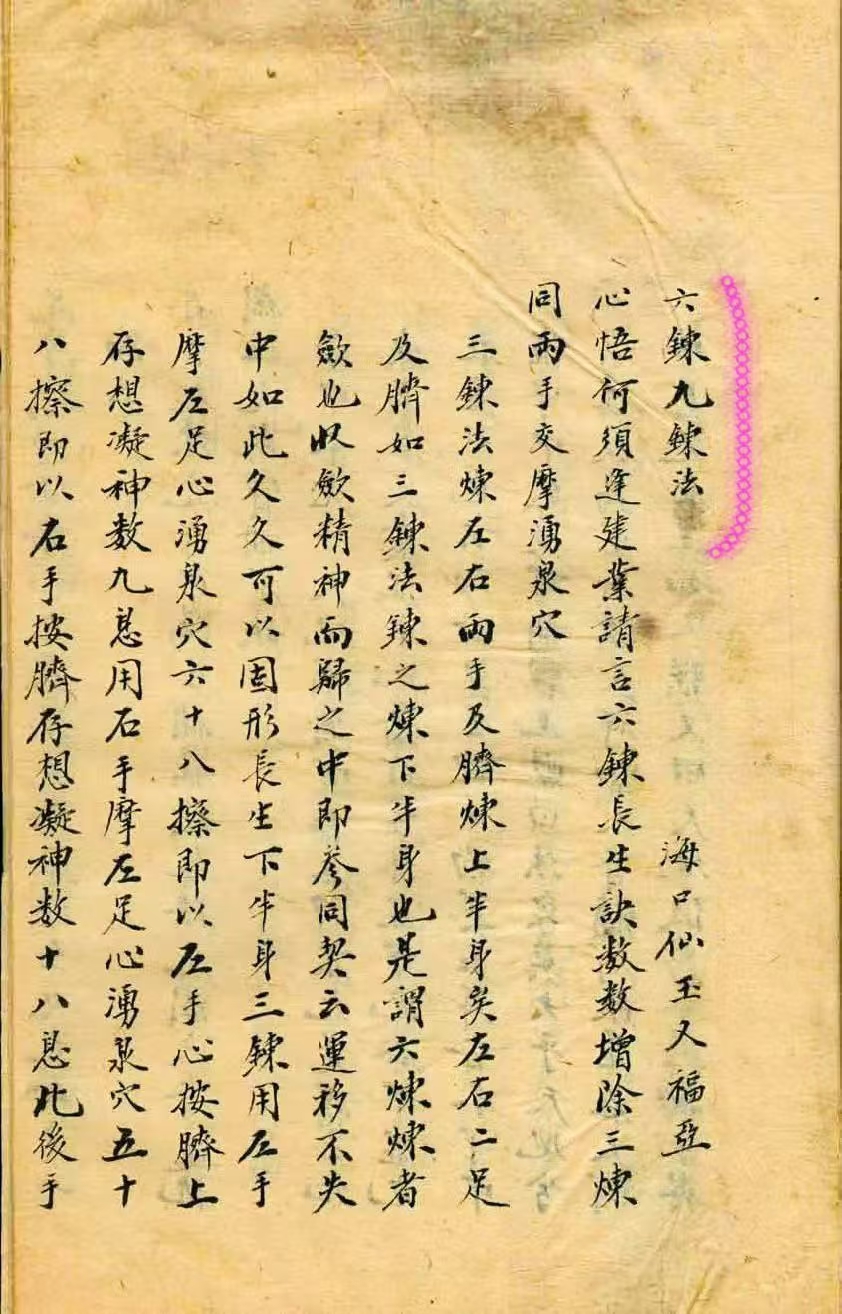 六鍊九鍊法
海口仙玉又福亞
心悟何須逢建業請言六鍊長生訣数数增除三煉
同兩手交摩湧泉穴
三鍊法煉左右兩手及臍煉上半身矣左右二足
及臍如三鍊法鍊之煉下半身也是謂六煉煉者
斂也收斂精神而歸之中即叅同契云運移不失
中如此久久可以固形長生下半身三鍊用左手
摩左足心湧泉穴六十八擦即以左手心按臍上
存想凝神数九息用右手摩左足心湧泉穴五十
八擦即以右手按臍存想凝神数十八息此後手